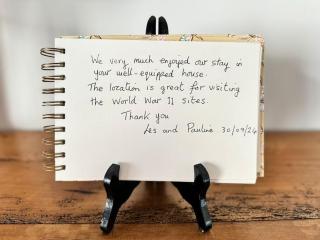 We very much enjoyed our stay in
your well-equipped house.
The location is great for visiting
the World War II sites.
Thank you
Les and Pauline 30/09/24